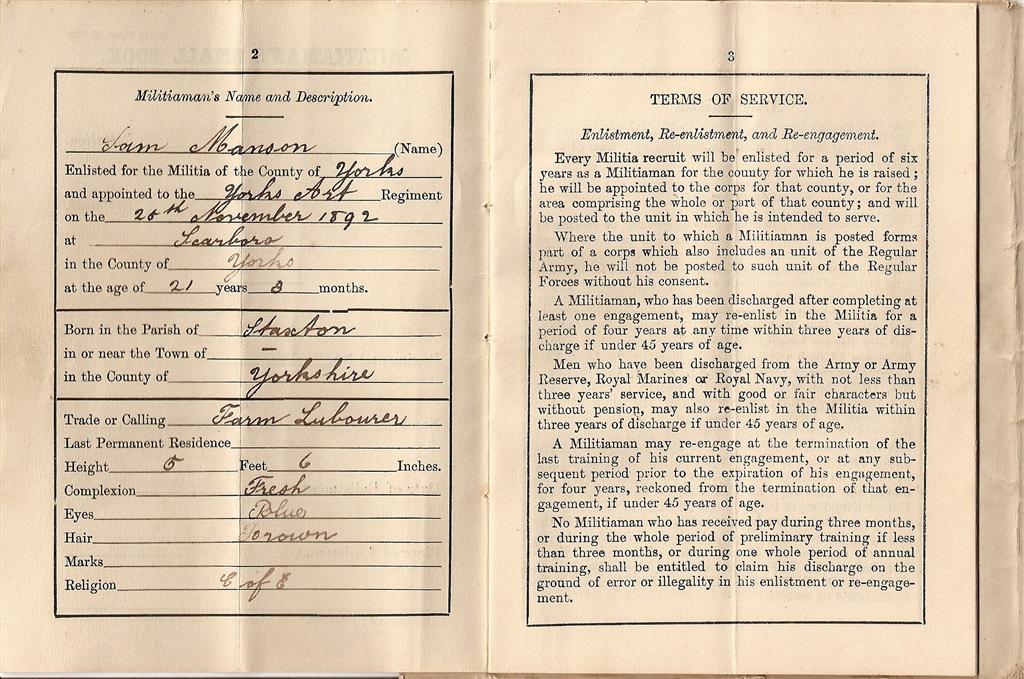 2
Militiaman's Name and Description.
Sam Manson (Name)
Enlisted for the Militia of the County of Yorks
and appointed to the Yorks Art Regiment
on the 26th November 1892
at Scarboro
in the County of Yorks
at the age of 21 years 3 months.
Born in the Parish of Staxton
in or near the Town of –
in the County of Yorkshire
Trade or Calling Farm Labourer
Last Permanent Residence
Height 5 Feet 6 Inches.
Complexion Fresh
Eyes Blue
Hair Brown
Marks
Religion C of E
3
TERMS OF SERVICE.
Enlistment, Re-enlistment, and Re-engagement.
Every Militia recruit will be enlisted for a period of six
years as a Militiaman for the county for which he is raised;
he will be appointed to the corps for that county, or for the
area comprising the whole or part of that county; and will
be posted to the unit in which he is intended to serve.
Where the unit to which a Militiaman is posted forms
part of a corps which also includes an unit of the Regular
Army, he will not be posted to such unit of the Regular
Forces without his consent.
A Militiaman, who has been discharged after completing at
least one engagement, may re-enlist in the Militia for a
period of four years at any time within three years of dis-
charge if under 45 years of age.
Men who have been discharged from the Army or Army
Reserve, Royal Marines or Royal Navy, with not less than
three years' service, and with good or fair characters but
without pension, may also re-enlist in the Militia within
three years of discharge if under 45 years of age.
A Militiaman may re-engage at the termination of the
last training of his current engagement, or at any sub-
sequent period prior to the expiration of his engagement,
for four years, reckoned from the termination of that en-
gagement, if under 45 years of age.
No Militiaman who has received pay during three months,
or during the whole period of preliminary training if less
than three months, or during one whole period of annual
training, shall be entitled to claim his discharge on the
ground of error or illegality in his enlistment or re-engage-
ment.